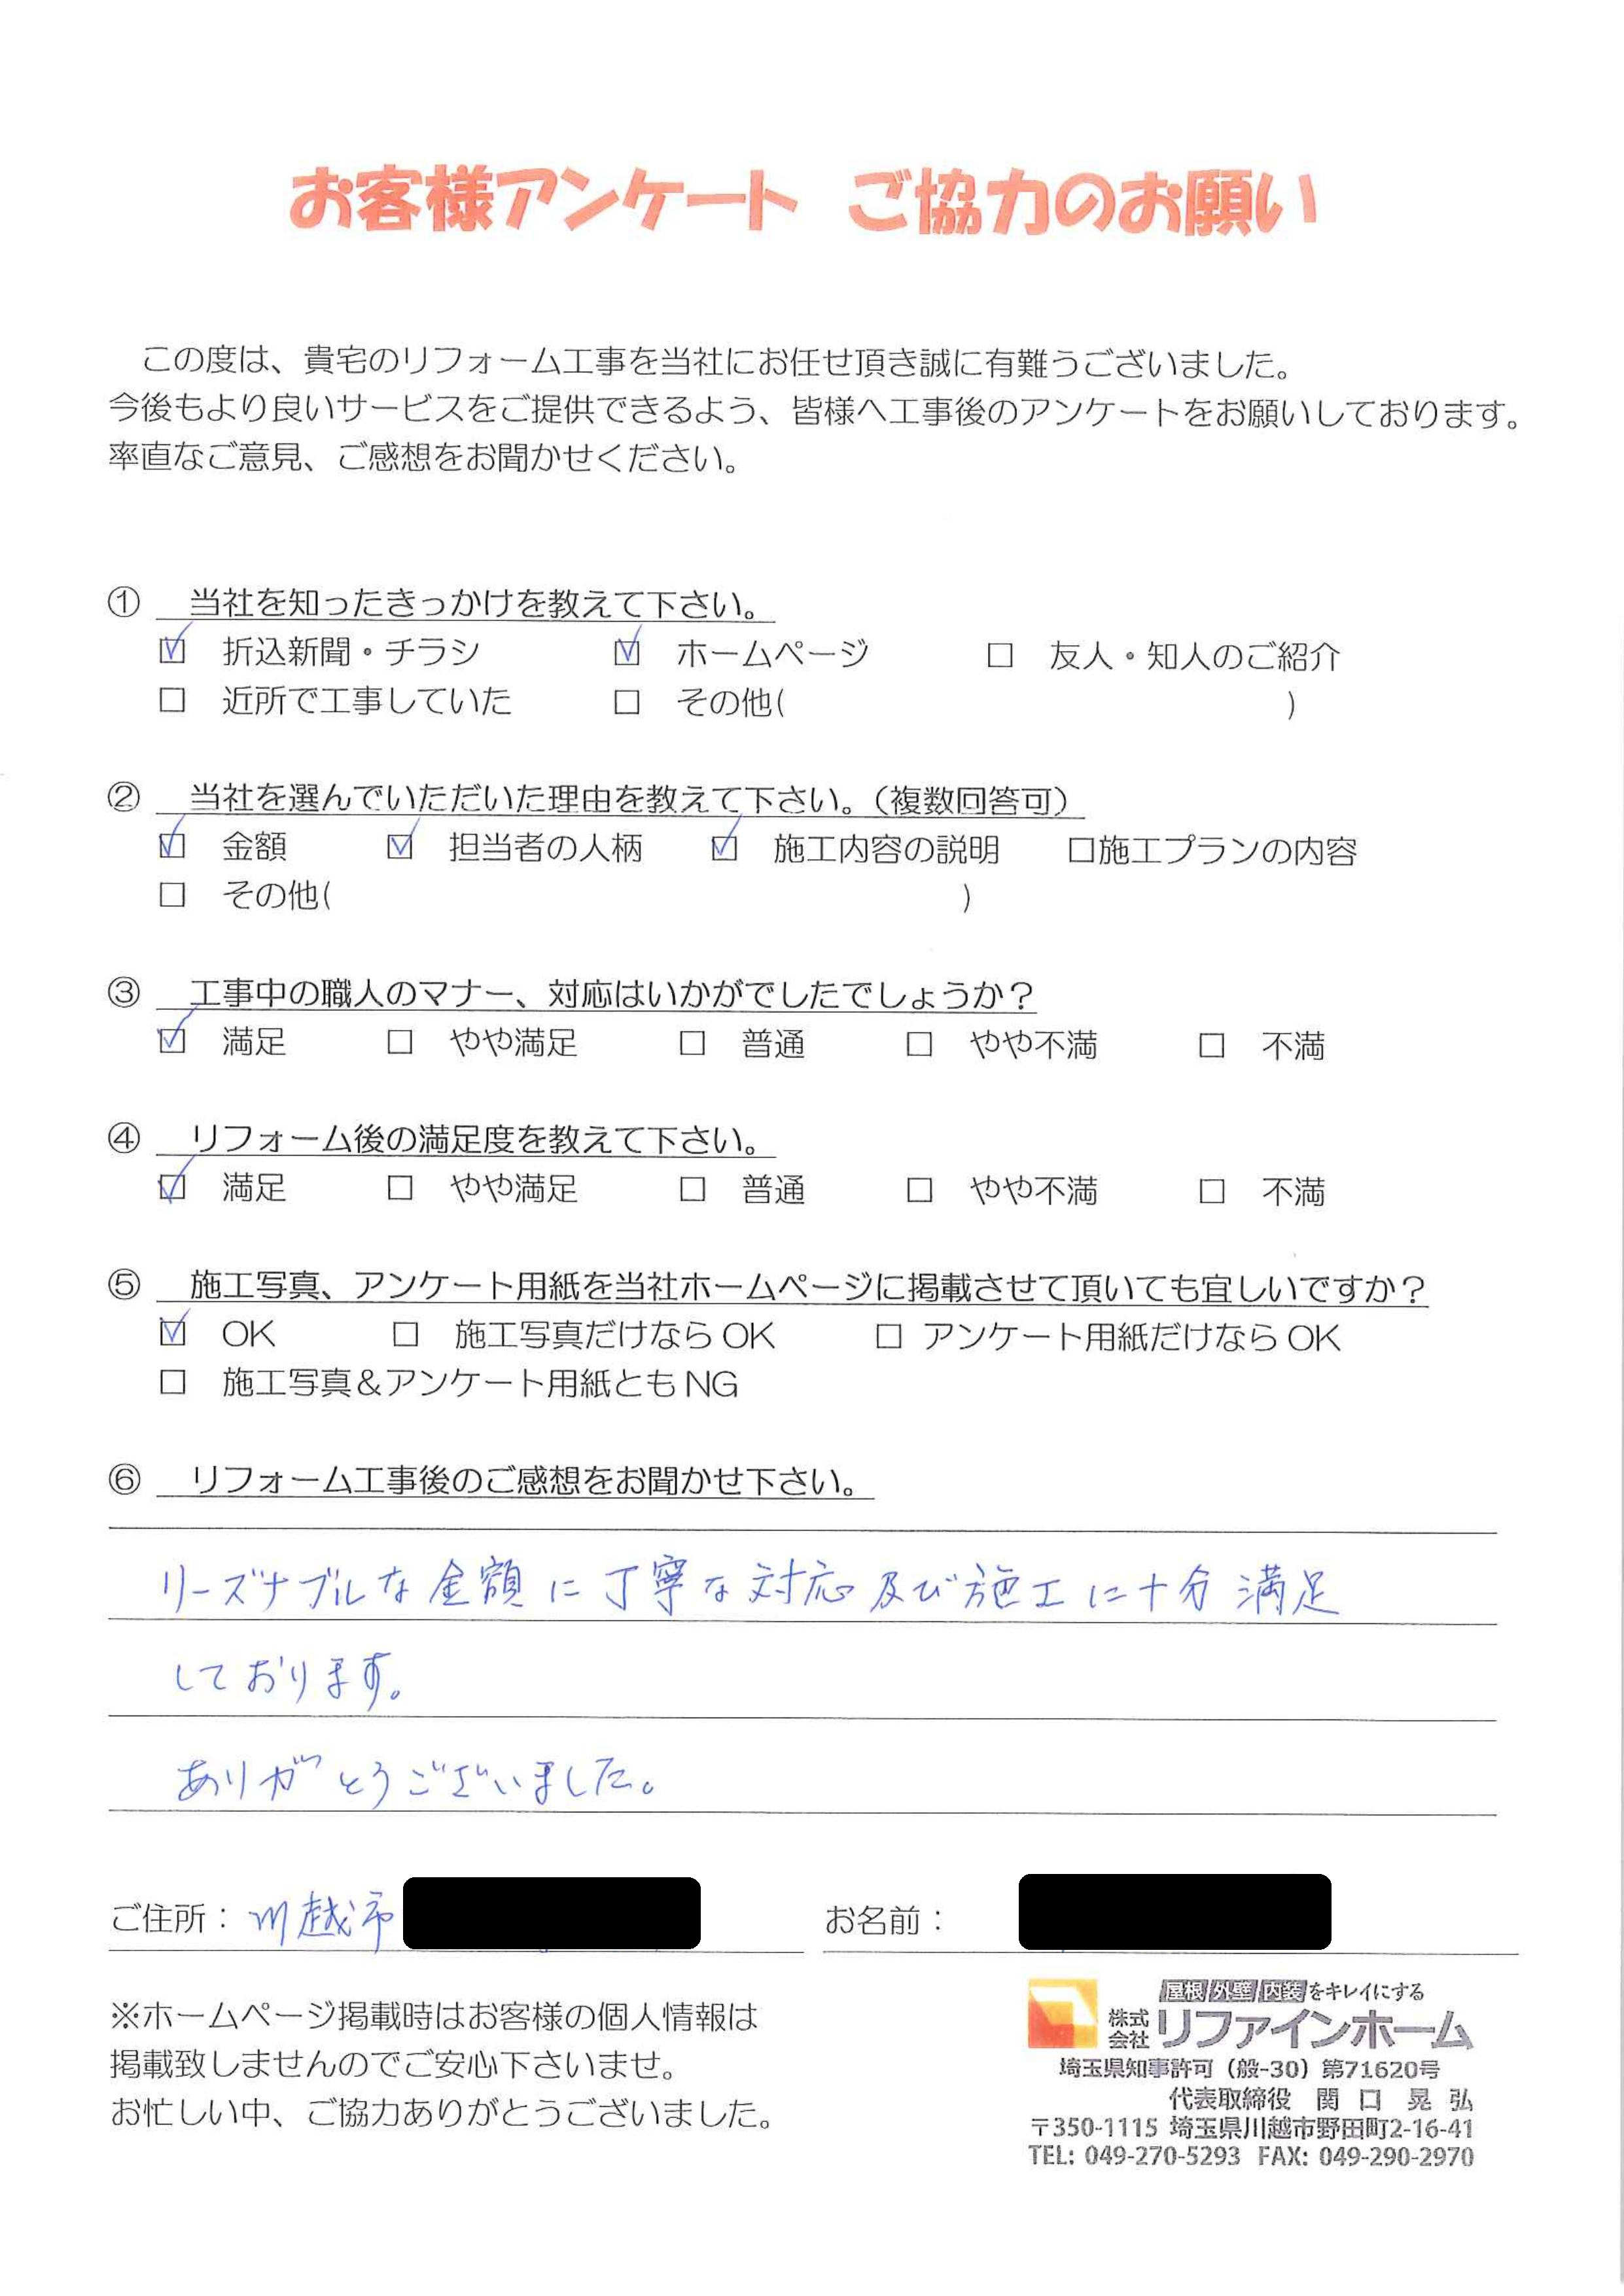 お客様アンケート ご協力のお願い
この度は、貴宅のリフォーム工事を当社にお任せ頂き誠に有難うございました。
今後もより良いサービスをご提供できるよう、皆様へ工事後のアンケートをお願いしております。
率直なご意見、ご感想をお聞かせください。
① 当社を知ったきっかけを教えて下さい。
☑ 折込新聞・チラシ ☑ ホームページ □ 友人・知人のご紹介
□ 近所で工事していた □ その他( )
② 当社を選んでいただいた理由を教えて下さい。（複数回答可）
☑ 金額 ☑ 担当者の人柄 ☑ 施工内容の説明 □施工プランの内容
□ その他( )
③ 工事中の職人のマナー、対応はいかがでしたでしょうか？
☑ 満足 □ やや満足 □ 普通 □ やや不満 □ 不満
④ リフォーム後の満足度を教えて下さい。
☑ 満足 □ やや満足 □ 普通 □ やや不満 □ 不満
⑤ 施工写真、アンケート用紙を当社ホームページに掲載させて頂いても宜しいですか？
☑ OK □ 施工写真だけなら OK □ アンケート用紙だけなら OK
□ 施工写真＆アンケート用紙とも NG
⑥ リフォーム工事後のご感想をお聞かせ下さい。
リーズナブルな金額に丁寧な対応及び施工に十分満足
しております。
ありがとうございました。
ご住所： 川越市 お名前：
※ホームページ掲載時はお客様の個人情報は
掲載致しませんのでご安心下さいませ。
お忙しい中、ご協力ありがとうございました。
屋根 外壁 内装をキレイにする
株式会社リファインホーム
埼玉県知事許可（般-30）第71620号
代表取締役 関口 晃弘
〒350-1115 埼玉県川越市野田町2-16-41
TEL: 049-270-5293 FAX: 049-290-2970